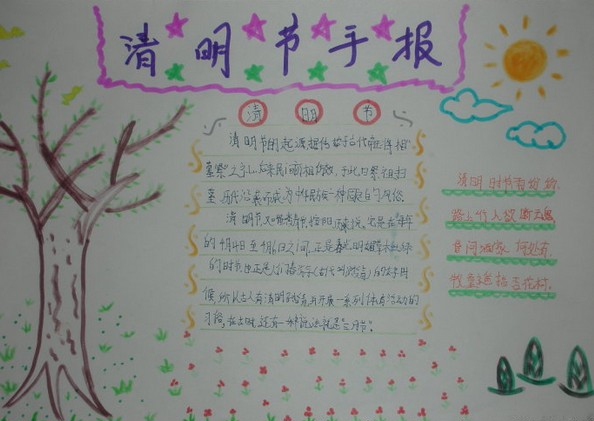 清明节手报
清明节
清明节的起源据传始于古代帝王将相
墓祭之礼，后来民间亦相仿效，于此日祭祖扫
墓，历代沿袭而成为中华民族一种固定的风俗
清明节又叫踏青节，按阳历来说，它是在每年
的4月4日至4月6日之间，正是春光明媚草木吐绿
的时节，也正是人们春游（古代叫踏青）的好时
候，所以古人有清明踏青，并开展一系列体育活动的
习俗，在古时，还有一种说法就是"三月节"。
清明时节雨纷纷，
路上行人欲断魂。
借问酒家何处有，
牧童遥指杏花村。